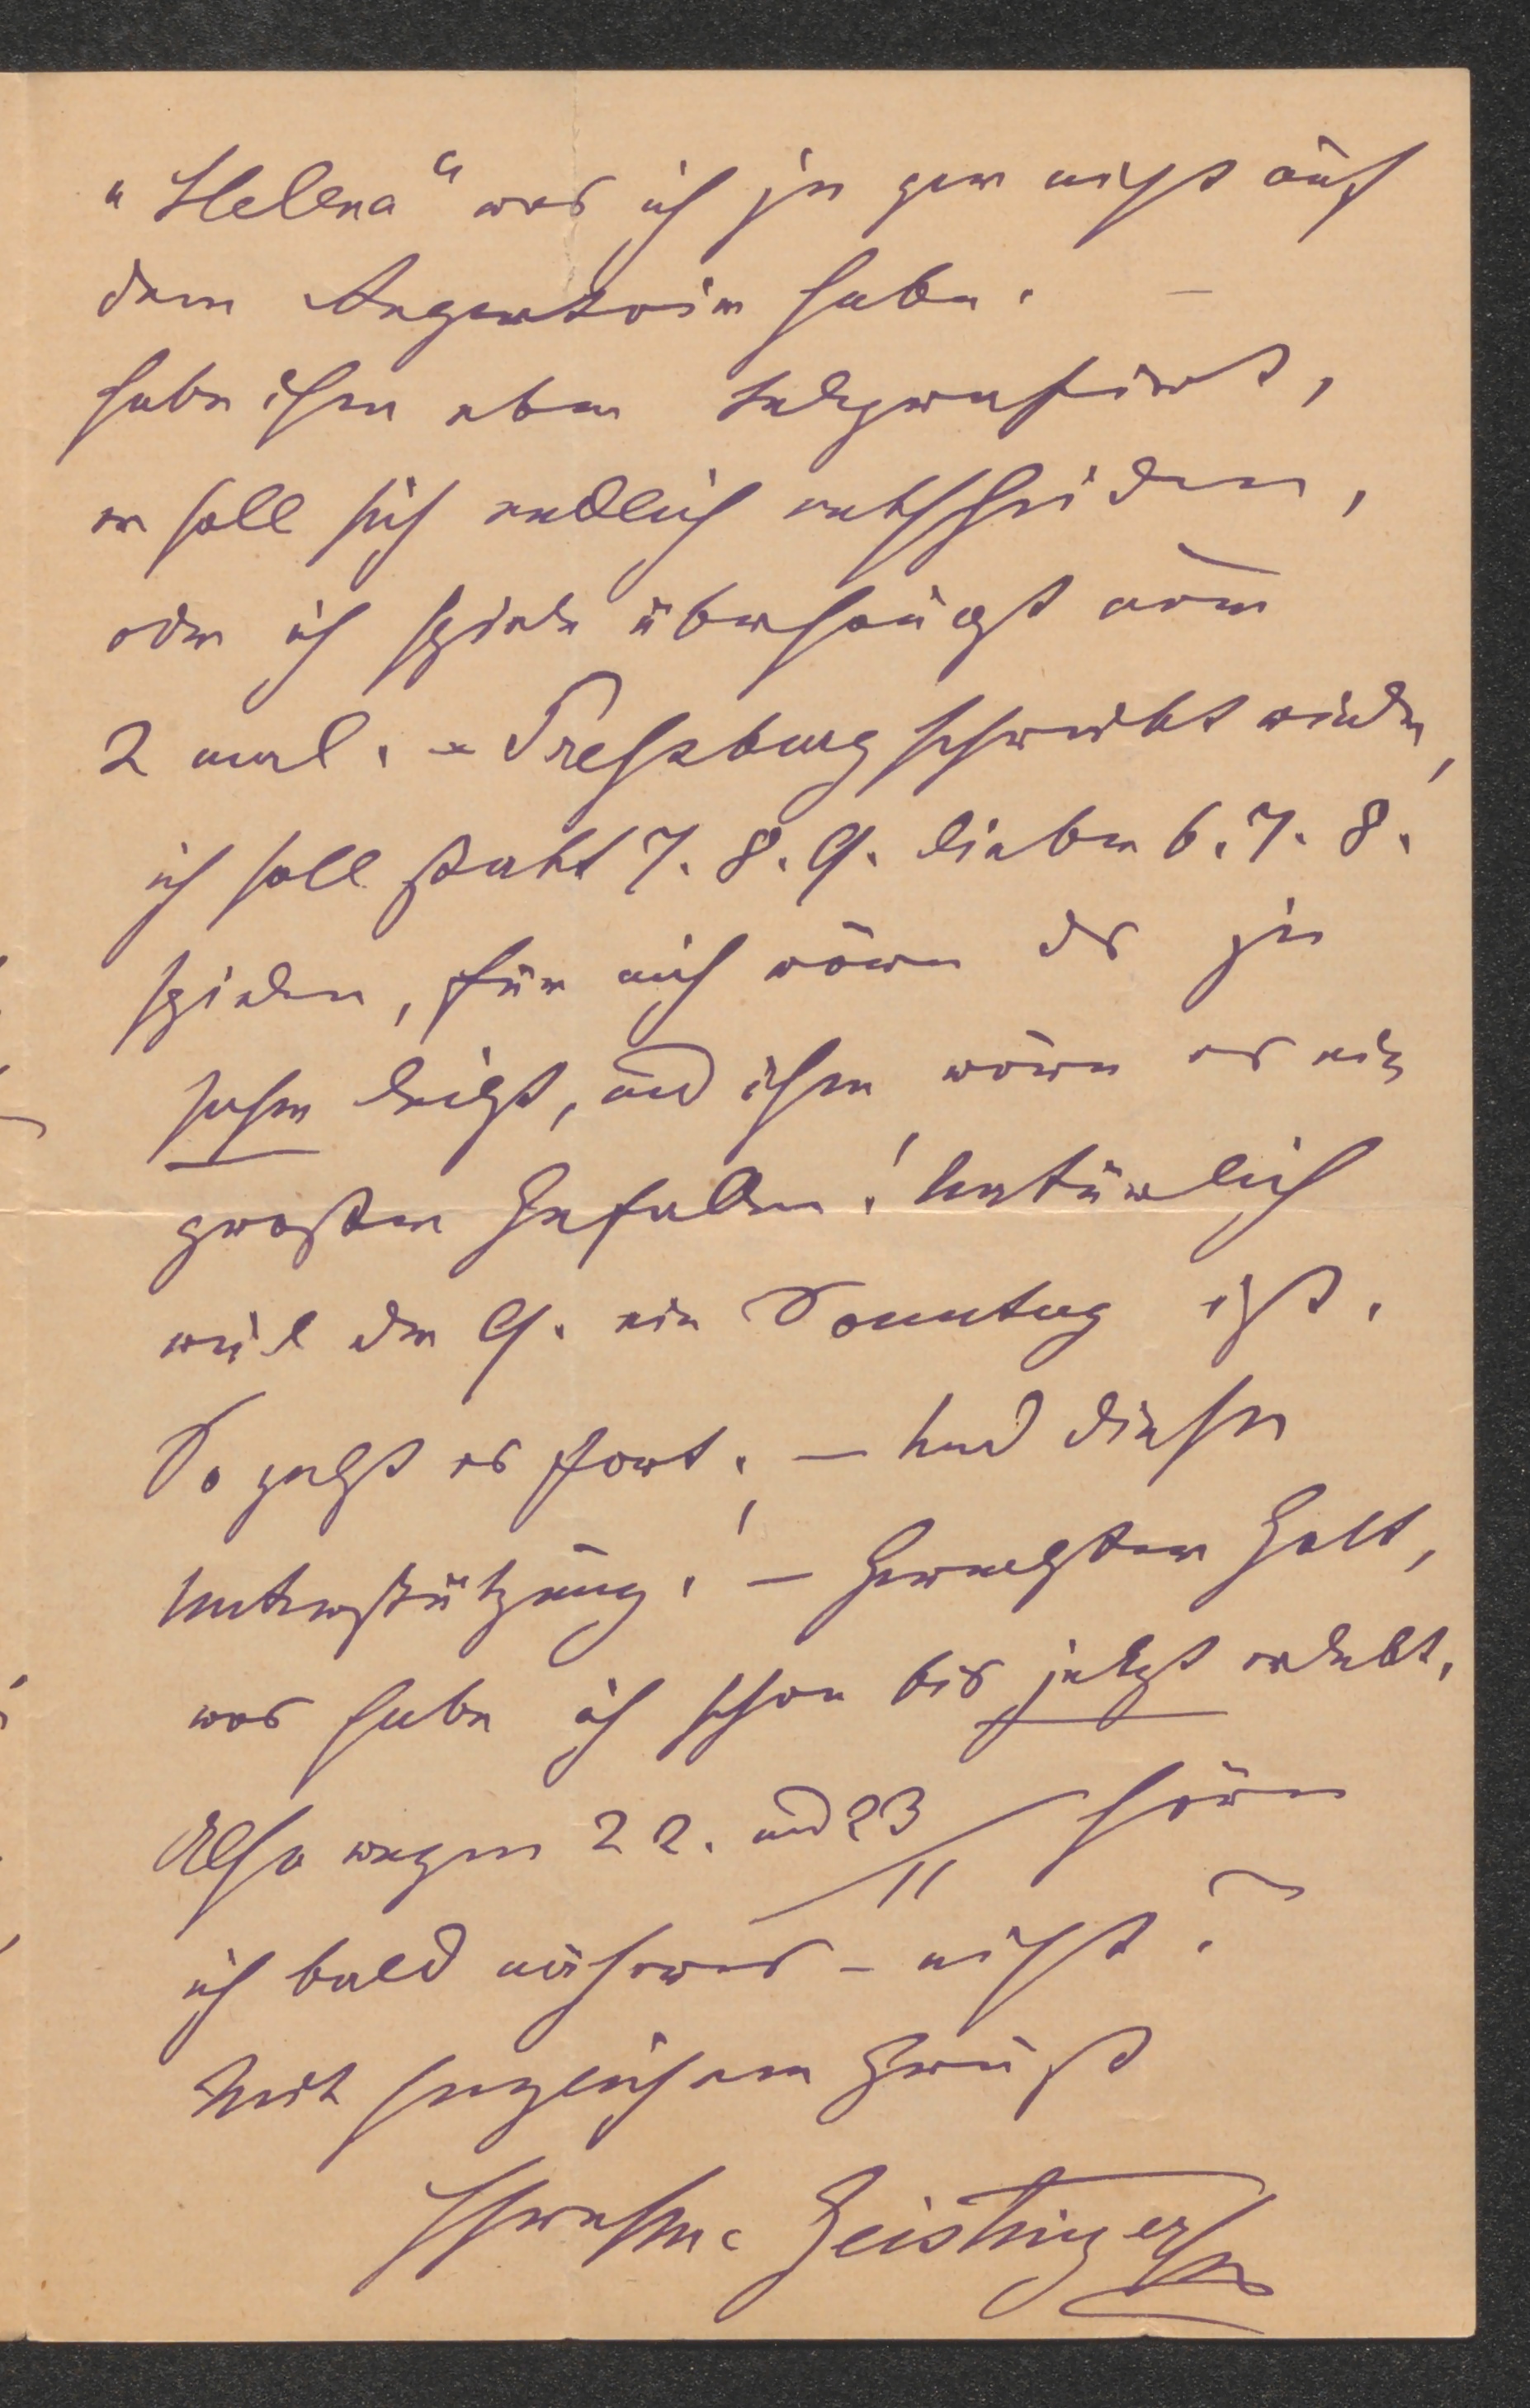 „Helena“ was ich ja gar nicht auf
dem Repertoir habe. –
habe ihm eben telegrafirt,
er soll sich endlich entscheiden,
oder ich spiele überhaupt nur
2 mal. – Pressburg schreibt wieder,
ich soll statt 7. 8. 9. lieber 6. 7. 8.
spielen, für mich wäre das ja
sehr leicht, und ihm wäre es ein
großer Gefallen! Natürlich
weil der 9. ein Sonntag ist.
So geht es fort. – Und diese
Unterstützung! – Gerechter Gott,
was habe ich schon bis jetzt erlebt.
Also wegen 22. und 23/11 höre
ich bald näheres – nicht?
Mit herzlichem Gruß
Ihre Geistinger